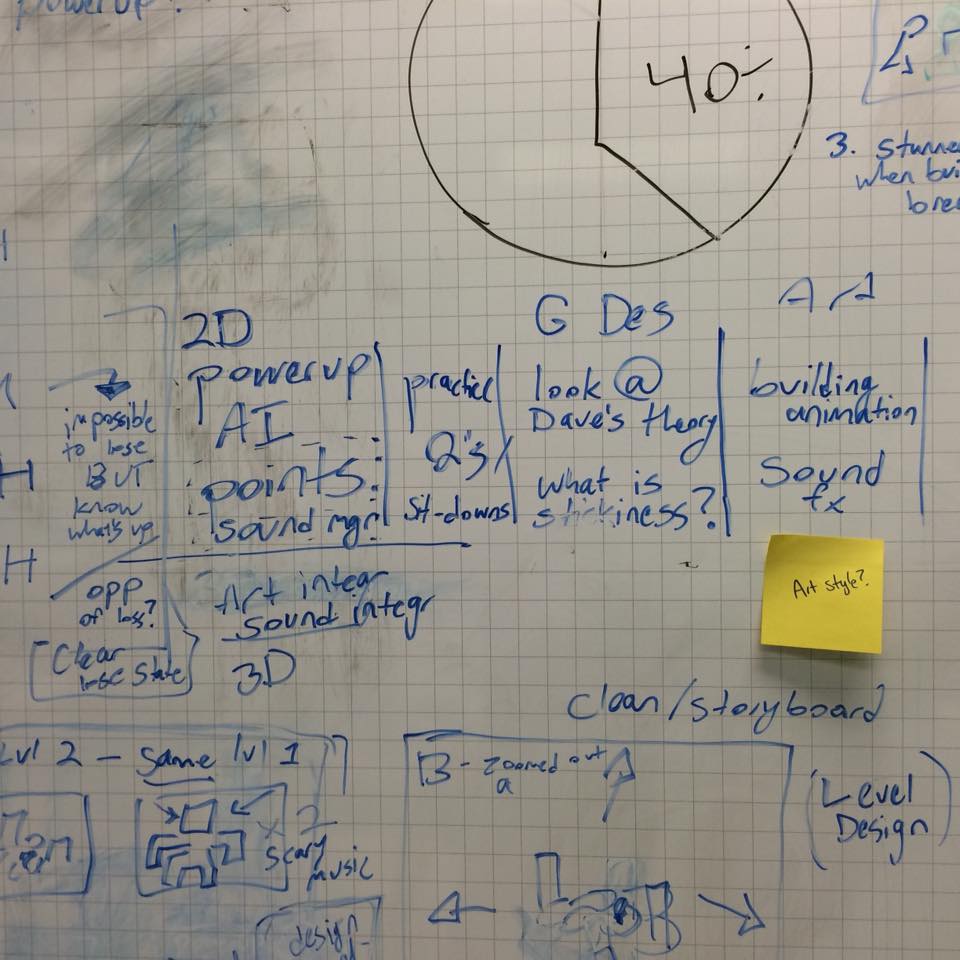 powerup?
40%
3. stunne
when bui
brea
2D
powerup
AI
points
sound mgr
practice
Q's
sit-downs
G Des
look @
Dave's theory
What is
stickiness?
Art
building
animation
Sound
fx
impossible
to lose
BUT
know
what's up
opp
of loss?
Clear
lose state
Art integr
Sound integr
3D
Art style?
Clean/storyboard
Lvl 2 - same lvl 1
x 2
scary
music
B - zoomed out
a
A
(Level
Design)
design